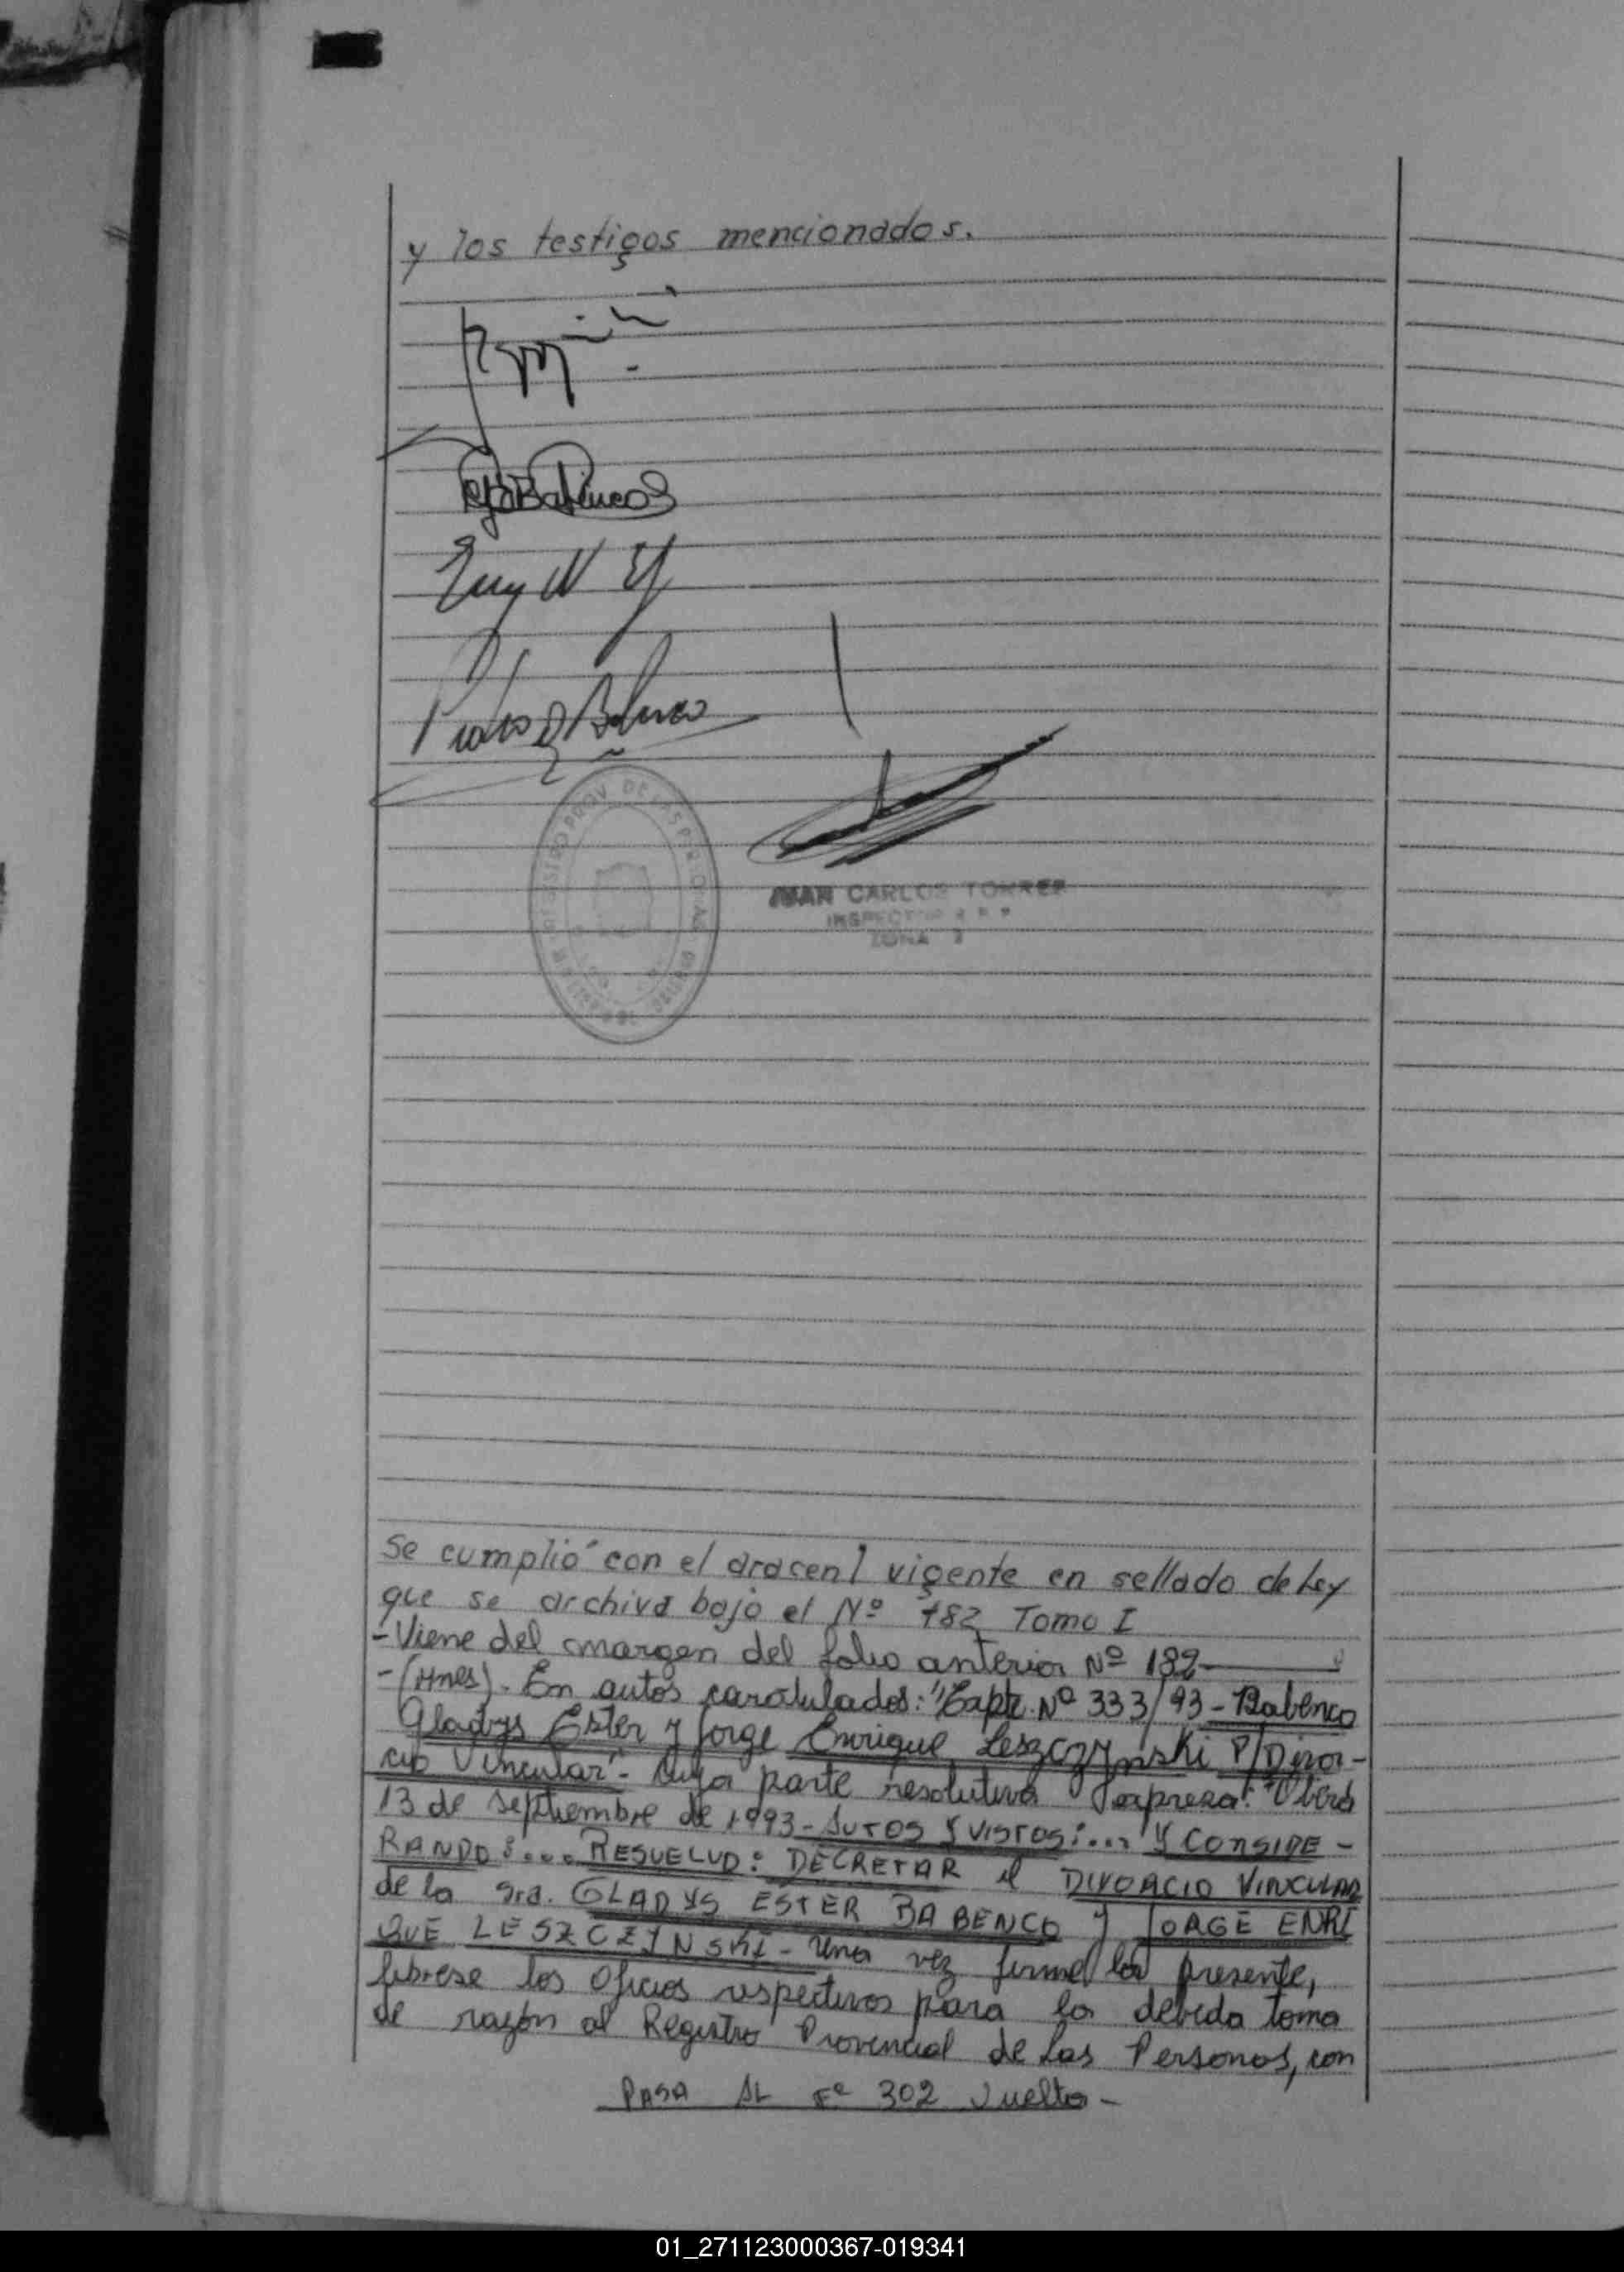 y los testigos mencionados.
REGISTRO PROV. DE LAS PERSONAS
JUAN CARLOS TORRES
INSPECTOR R P P
ZONA 2
Se cumplió con el aracenl vigente en sellado de Ley
que se archiva bajo el Nº 182 Tomo I
-Viene del margen del folio anterior Nº 182-
-(Mnes). En autos caratulados: "Expte. Nº 333/93 - Babenco
Gladys Ester y Jorge Enrique Leszczynski P/Divor-
cio Vincular" - Cuya parte resolutiva expresa: "Oberá
13 de septiembre de 1993 - AUTOS Y VISTOS:... Y CONSIDE-
RANDO:... RESUELVO: DECRETAR el DIVORCIO VINCULAR
de la Sra. GLADYS ESTER BABENCO y JORGE ENRI
QUE LESZCZYNSKI - Una vez firme la presente,
líbrese los oficios respectivos para la debida toma
de razón al Registro Provincial de Las Personas, con
PASA AL Fº 302 Vuelto -
01_271123000367-019341